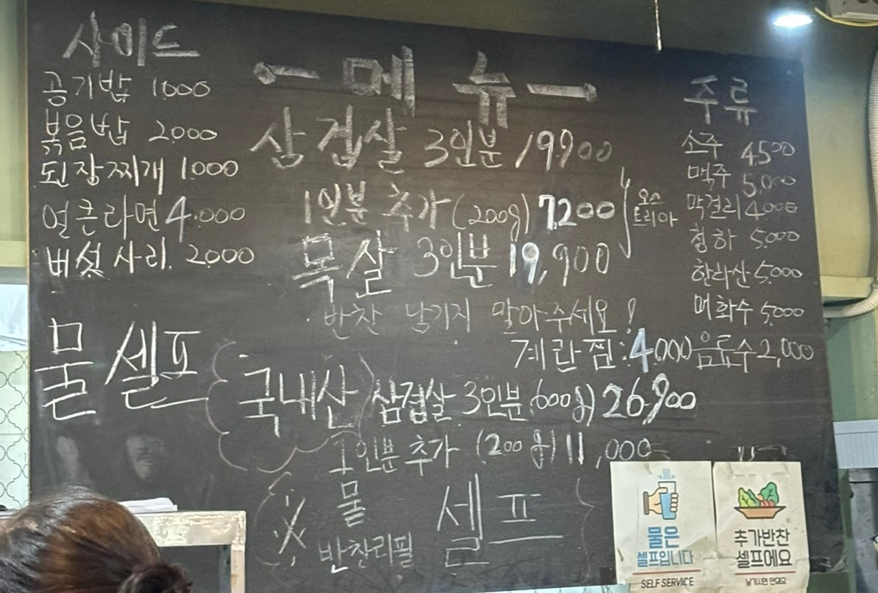 사이드
공기밥 1.000
볶음밥 2.000
된장찌개 1.000
얼큰라면 4.000
버섯사리. 2.000
물 셀프
메뉴
삼겹살 3인분 19.900
1인분 추가 (200g) 7.200
오스
트리아
목살 3인분 19,900
반찬 남기지 말아주세요!
계란찜:4.000
국내산 삼겹살 3인분(600g) 26.900
1인분 추가 (200g) 11,000
※ 물 셀프
반찬리필
주류
소주 4500
맥주 5,000
막걸리 4.000
청하 5,000
한라산 5,000
매화수 5,000
음료수 2,000
물은
셀프입니다
SELF SERVICE
추가반찬
셀프에요